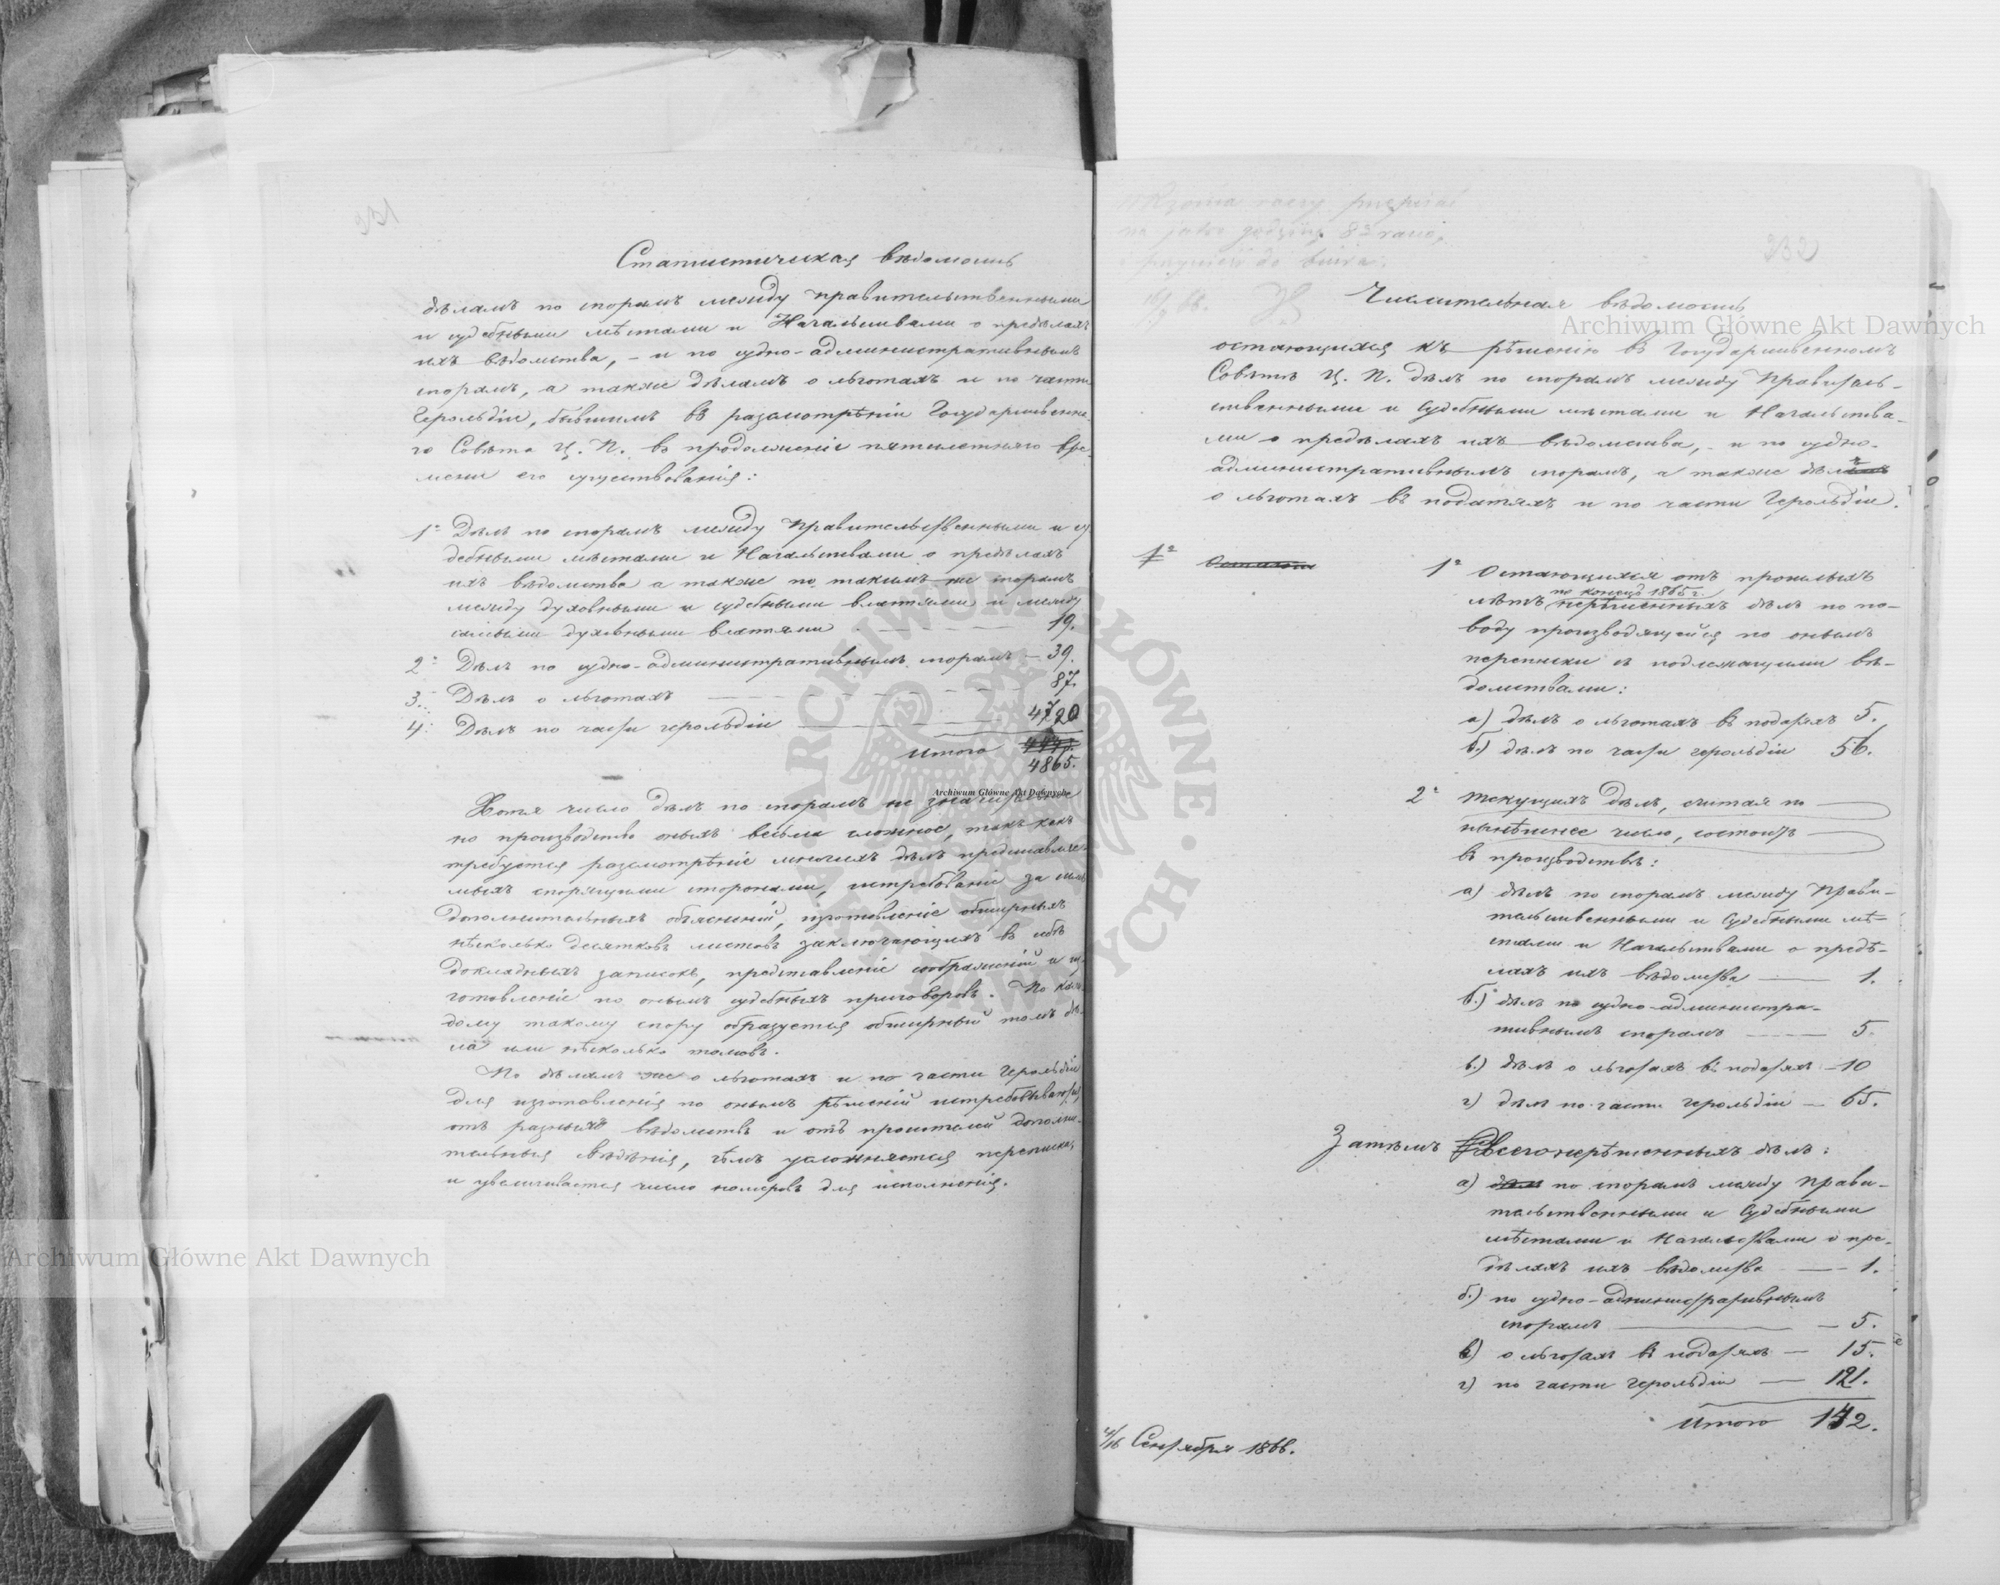 231
Статистическая вѣдомость
дѣламъ по спорамъ между Правительственными
и судебными мѣстами и Начальствами о предѣлахъ
ихъ вѣдомства, – и по судно-административнымъ
спорамъ, а также дѣламъ о льготахъ и по части
Герольдіи, бывшимъ въ разсмотрѣніи Государственна-
го Совѣта Ц. П. въ продолженіе пятилетняго вре-
мени его существованія:
1. Дѣлъ по спорамъ между Правительственными и су
дебными мѣстами и Начальствами о предѣлахъ
ихъ вѣдомства а также по такимъ же спорамъ
между духовными и судебными властями и между
самыми духовными властями — 19.
2. Дѣлъ по судно-административнымъ спорамъ — 39.
3. Дѣлъ о льготахъ — 87.
4. Дѣлъ по части герольдіи — 4720
Итого
4865.
Хотя число дѣлъ по спорамъ не значительно
но производство оныхъ весьма сложное, такъ какъ
требуется разсмотрѣніе многихъ дѣлъ представляе-
мыхъ спорящими сторонами, истребованіе за симъ
дополнительныхъ объясненій, изготовленіе обширныхъ
нѣсколько десятковъ листовъ заключающихъ въ себѣ
докладныхъ записокъ, представленіе соображеній и из-
готовленіе по онымъ судебныхъ приговоровъ. По каж-
дому такому спору образуется обширный томъ дѣ-
ла или нѣсколько томовъ.
По дѣламъ же о льготахъ и по части Герольдіи
для изготовленія по онымъ рѣшеній истребовываются
отъ разныхъ вѣдомствъ и отъ просителей дополни-
тельныя свѣдѣнія, чѣмъ усложняется переписка,
и увеличивается число номеровъ для исполненія.
na jutro godzinę 8½ rano,
232
Числительная вѣдомость
остающихся къ рѣшенію въ Государственномъ
Совѣтѣ Ц. П. дѣлъ по спорамъ между Правитель-
ственными и Судебными мѣстами и Начальства-
ми о предѣлахъ ихъ вѣдомства, – и по судно-
административнымъ спорамъ, а также дѣлъ
о льготахъ въ податяхъ и по части Герольдіи.
1º Остающ
1º Остающихся отъ прошлыхъ
по конецъ 1865 г.
лѣтъ нерѣшенныхъ дѣлъ по по-
воду производящейся по онымъ
переписки съ подлежащими вѣ-
домствами:
а) дѣлъ о льготахъ въ податяхъ 5.
б.) дѣлъ по части герольдіи 56.
2º текущихъ дѣлъ, считая по
нынѣшнее число, состоитъ
въ производствѣ:
а) дѣлъ по спорамъ между Прави-
тельственными и Судебными мѣ-
стами и Начальствами о предѣ-
лахъ ихъ вѣдомства — 1.
б.) дѣлъ по судно-администра-
тивнымъ спорамъ — 5.
в.) дѣлъ о льготахъ въ податяхъ — 10
г) дѣлъ по части герольдіи — 65.
Затѣмъ Всего нерѣшенныхъ дѣлъ:
а) дѣлъ по спорамъ между Прави-
тельственными и Судебными
мѣстами и Начальствами о пре-
дѣлахъ ихъ вѣдомства — 1.
б.) по судно-административнымъ
спорамъ — 5.
в) о льготахъ въ податяхъ — 15.
г) по части герольдіи — 121.
Итого 142.
4/16 Сентября 1866.
Archiwum Główne Akt Dawnych
Archiwum Główne Akt Dawnych
Archiwum Główne Akt Dawnych
ARCHIWUM GŁÓWNE AKT DAWNYCH